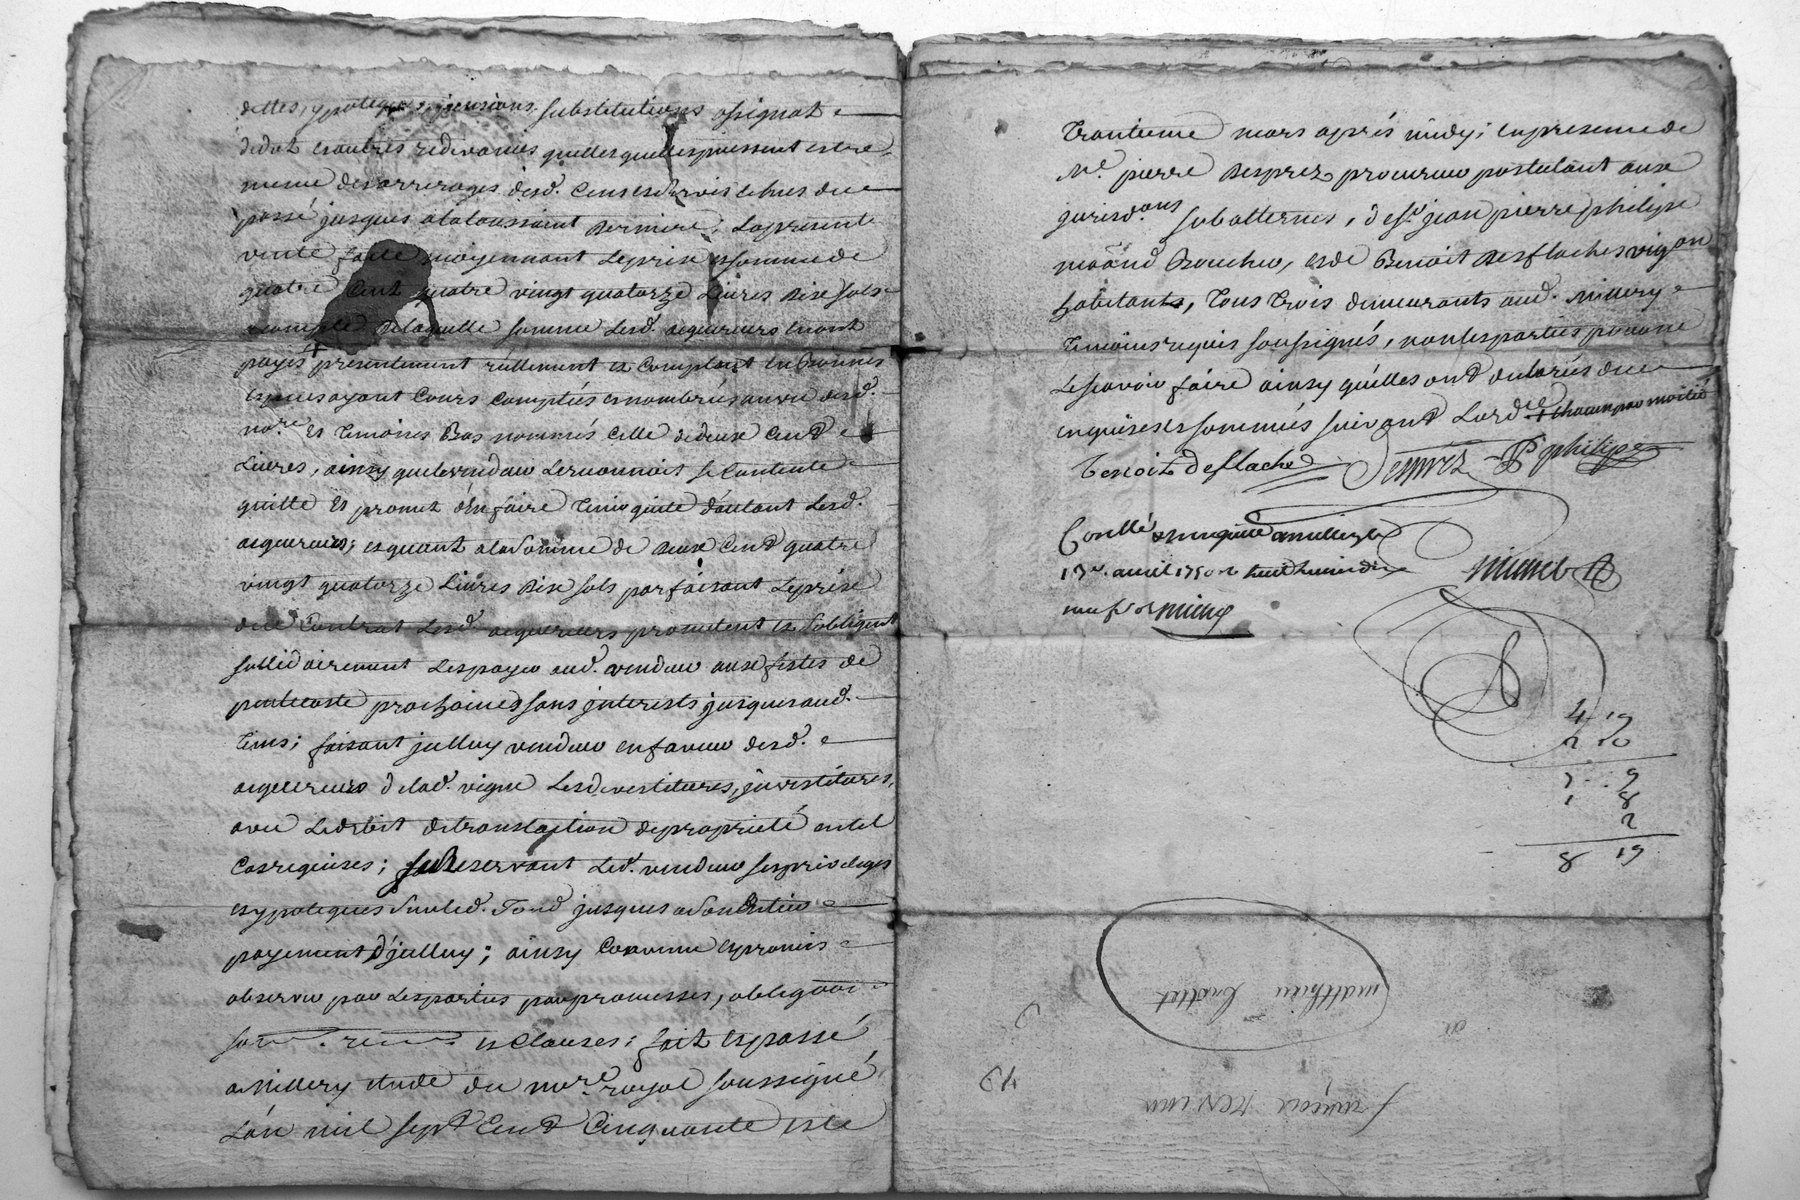 dettes, ypoteques, pensions, substitutions assignat
dedot et autres redevances quelles quelles puissent estre,
mesme des arrerages desd. cens et servis echus du
passé jusques alatoussaint derniere; la presente
vente faite moyennant leprix et somme de
quatre cent quatre vingt quatorze livres dix sols
compte delaquelle somme lesd. acquereurs en ont
payés presentement réellement et comptant en bonnes
especes ayant cours comptés et nombrés au vu desd.
nore. et temoins bas nommés celle dedeux cent
livres, ainsy que levendeur lereconnoit se contente
quitte et promet d'en faire tenir quitte d'autant lesd.
acquereurs; et quant alasomme de deux cent quatre
vingt quatorze livres dix sols parfaisant leprix
du contrat lesd. acquereurs promettent et s'obligent
sollidairement lespayer aud. vendeur aux festes de
pentecoste prochaines sans interests jusques aud.
tems; faisant jcelluy vendeur en faveur desd.
acquereurs delad. vigne lesdevestitures, jnvestitures,
avec ledroit detranslation depropriété en tel
cas requises; se Reservant led. vendeur ses privileges
et ypoteques surled. fond jusques a son entier
payement d'jcelluy; ainsy convenu et promis
observer par lesparties par promesses, obligaoi
soum. renon. et clauses; fait et passé
a Millery etude du nore. royal soussigné
L'an mil sept Cent Cinquante et le
trantieme mars aprés midy; en presence de
Me. pierre Desprez procureur postulant aux
jurisd.ons subalternes, de sr. jean pierre philipe
maānd Boucher, et de Benoit Desflaches vigon
habitants, tous trois demeurants aud. Millery
temoins requis soussignés, nonlesparties pour ne
lesçavoir faire ainsy qu'elles ont declarés de ce
enquises et sommées suivant Lordce + chacun par moitié
benoit deflaché Desprez JP philipe
Conllé et insinué a millery le
13e. avril 1750
4 19
2 10
7 . 9
1 8
2
8 19
matthieu
françois